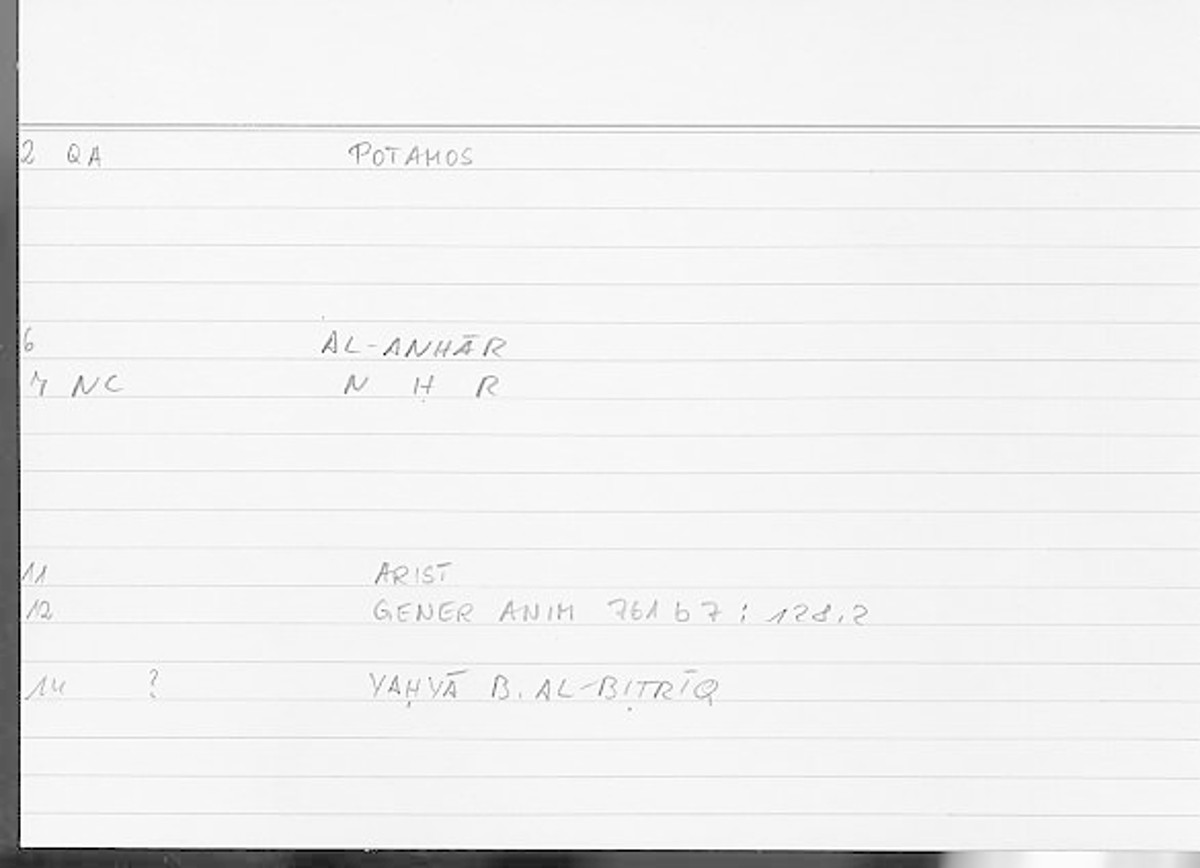 2 QA POTAMOS
6 AL-ANHĀR
7 NC N Ḥ R
11 ARIST
12 GENER ANIM 761 b 7 : 128,2
14 ? YAḤYĀ B. AL-BIṬRĪQ